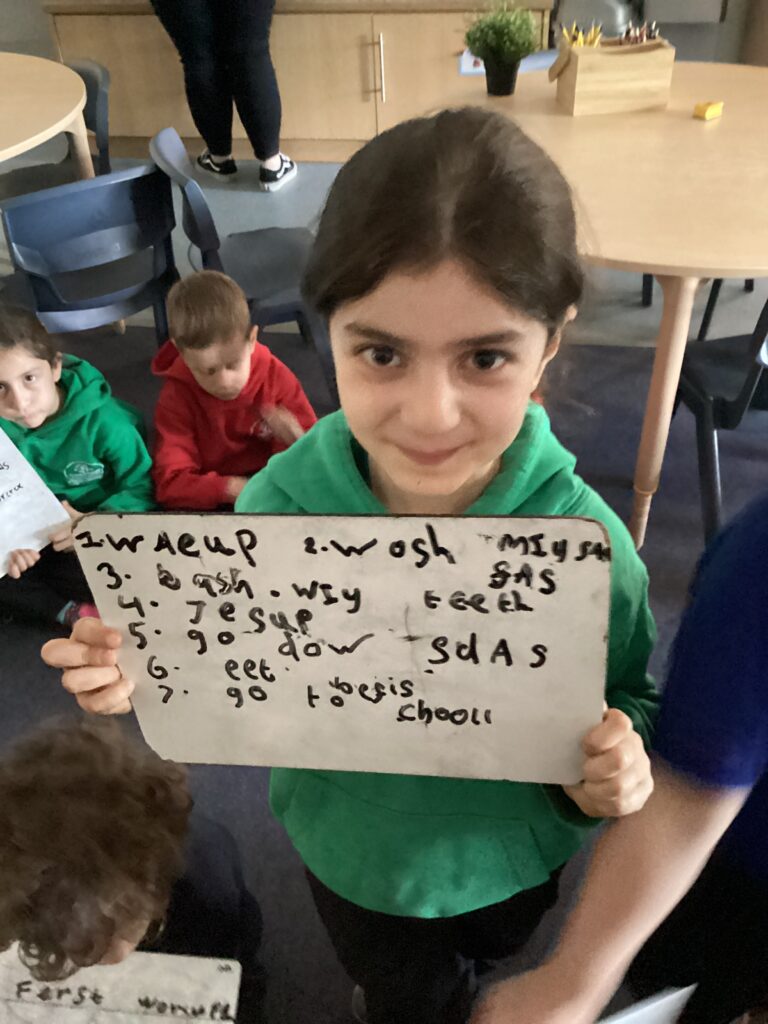 1. wAeup 2. wosh MIy
SAS
3. bash. wIy teeth
4. Jesup
5. go dow SdAs
6. eet.
7. go to
chooll
Ferst